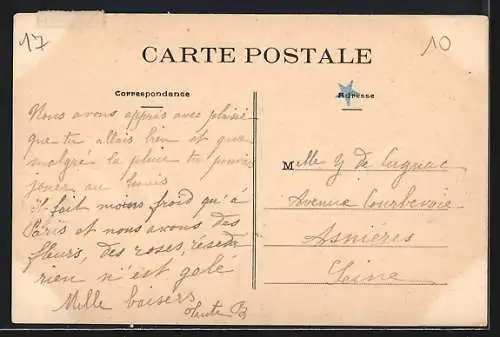 17
10
CARTE POSTALE
Correspondance
Adresse
Nous avons appris avec plaisir
que tu allais bien et que
malgré la pluie tu pouvais
jouer au tennis
il fait moins froid qu'à
Paris et nous avons des
fleurs, des roses, réséda
rien n'est gelé
Mille baisers
B
Melle Y de Cugnac
Avenue Courbevoie
Asnières
Seine